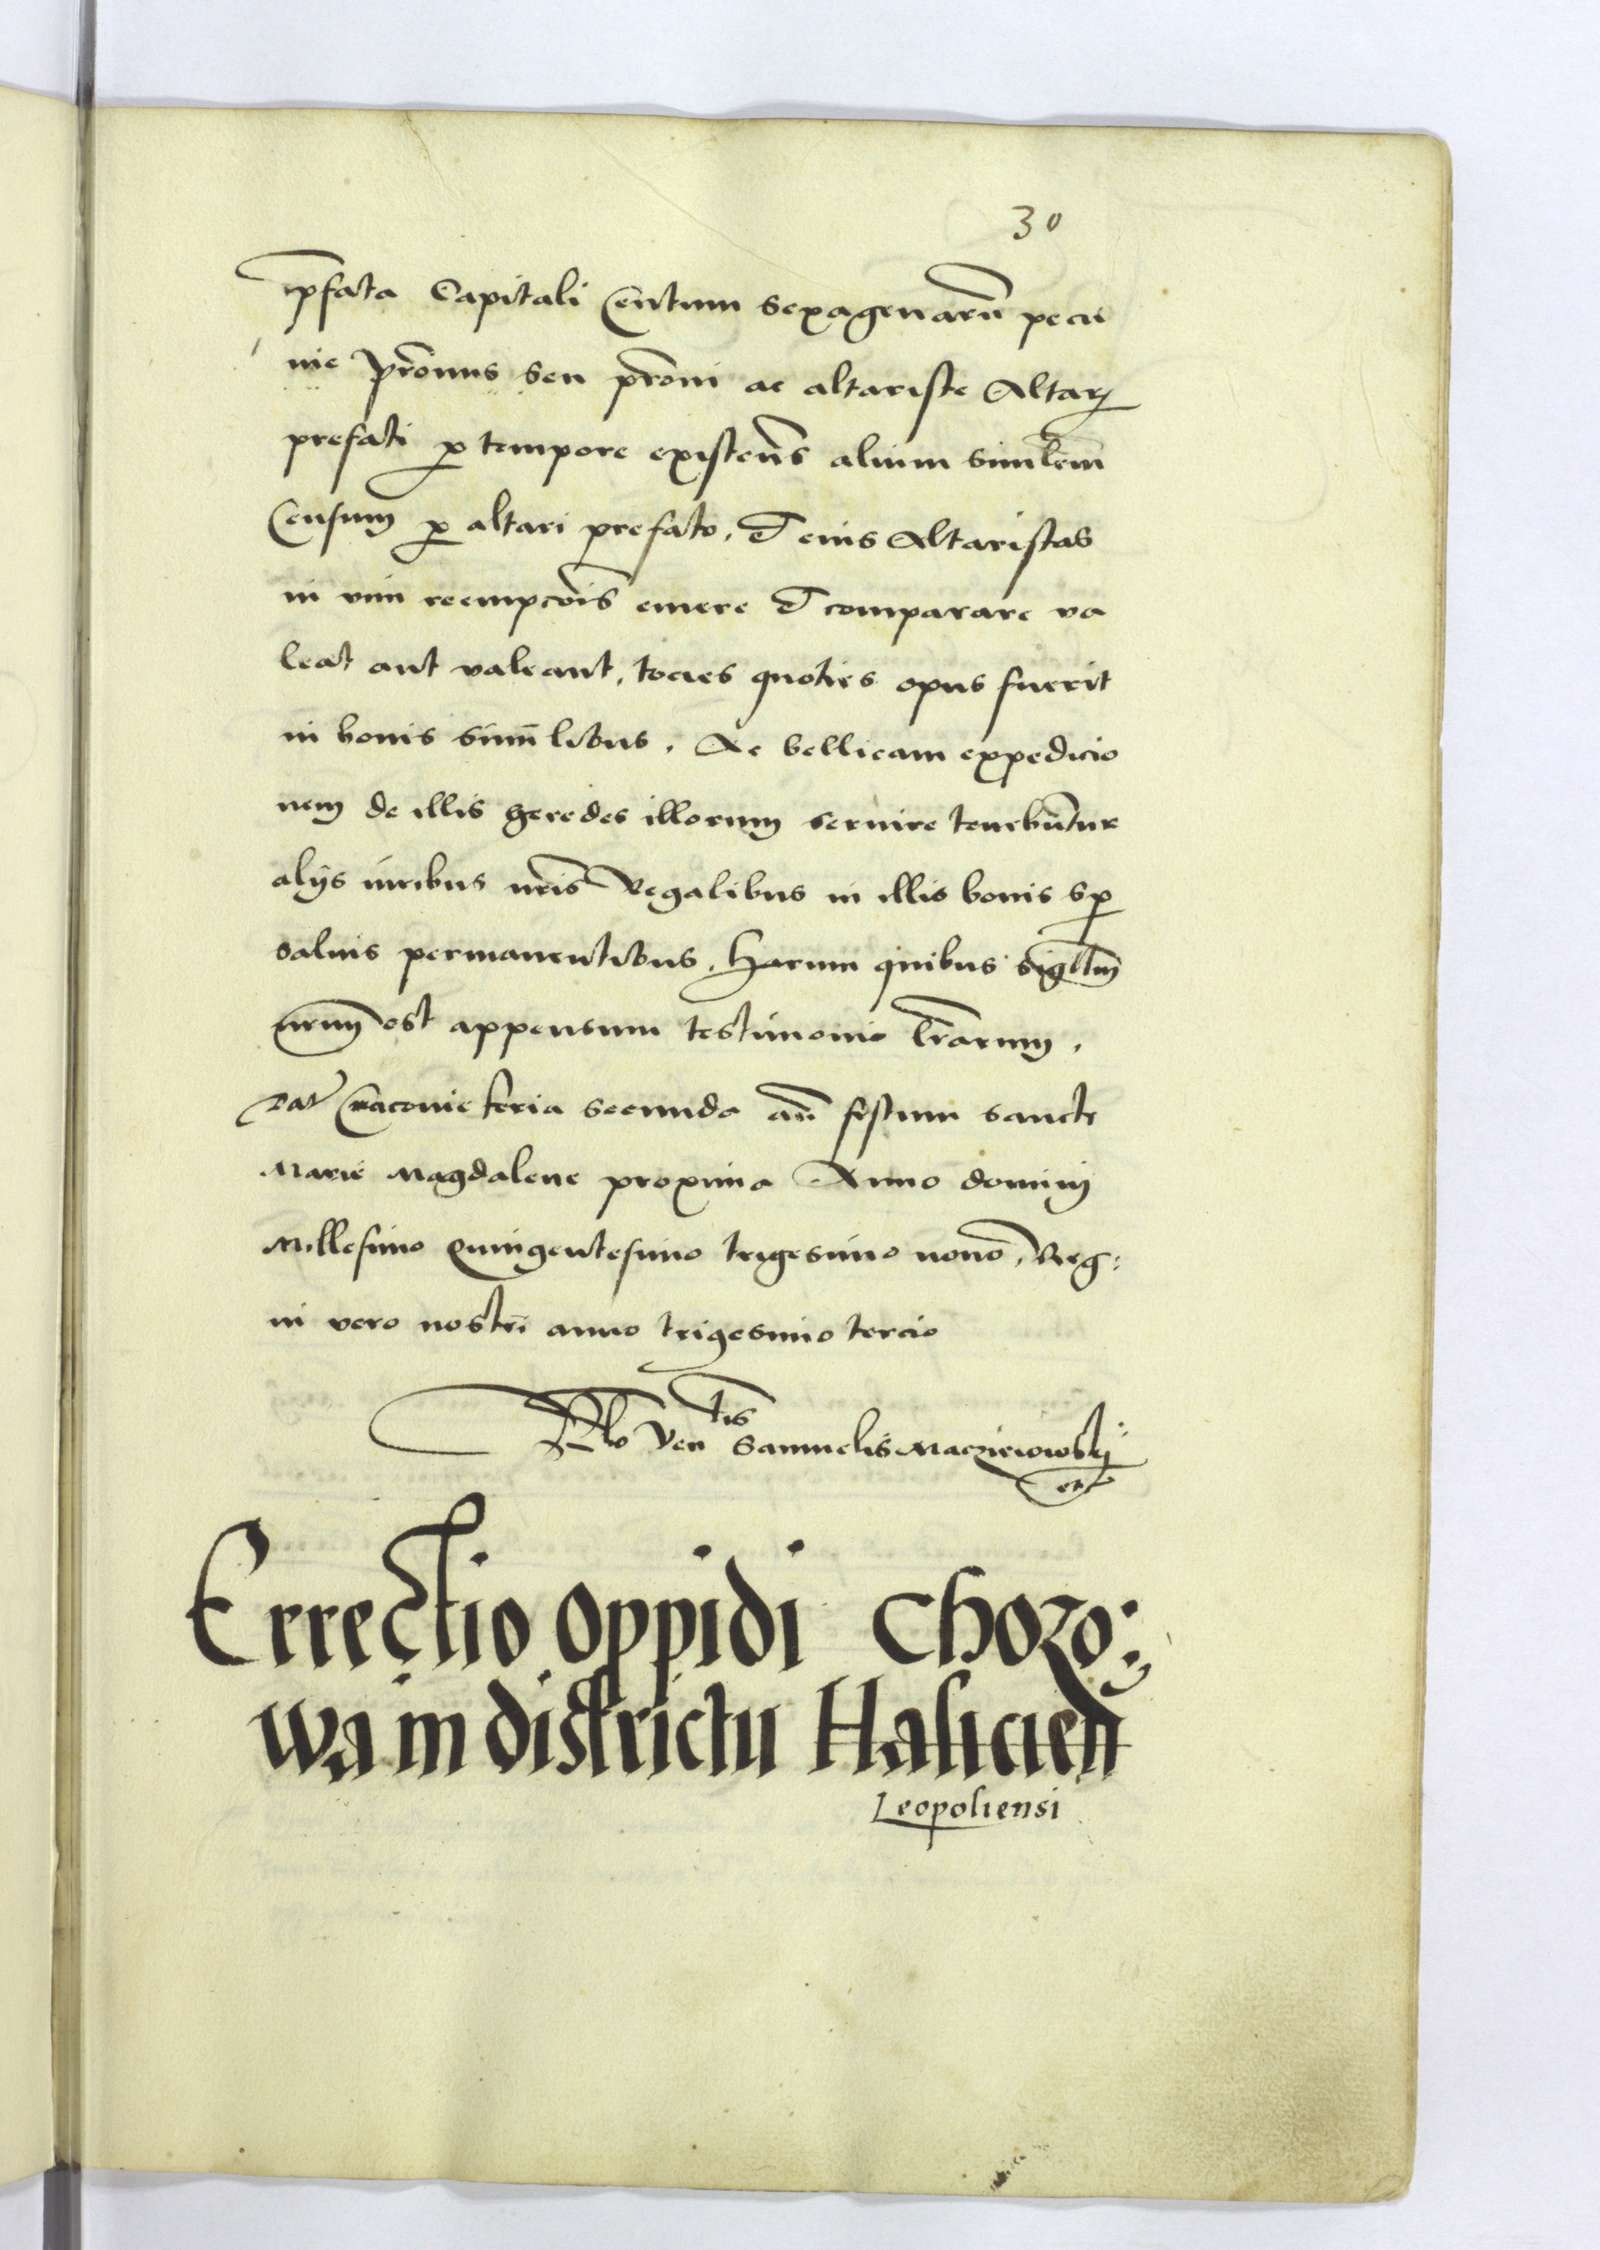 30
p̄fata Capitali Centum sexagenarū pecu
nie pr̄onus seu pr̄oni ac altariste Altarj
prefati p tempore existen̄s alium simlem̄
Censum p altari prefato, et eius Altaristas
in vim reempcōis emere et comparare va
leat aut valeant, tocies quoties opus fuerit
in bonis simīlibus. Ac bellicam expedicio
nem de illis heredes illorum seruire tenebūtur
alijs iuribus nr̄is Regalibus in illis bonis sp
saluis permanentibus. Harum quibus sigllm̄
nrum̄ est appensum testimonio lr̄arum.
Dat Cracouie feria secunda an̄ festum sancte
Marie Magdalene proxima Anno dominj
Millesimo Quingentesimo trigesimo nono, Reg:
ni vero nostri anno trigesimo tercio
Rlo Ven tis Samuelis Maczieiowskj
etc
Errectio oppidi Chozo:
wa in districtu Halicien̄
Leopoliensi